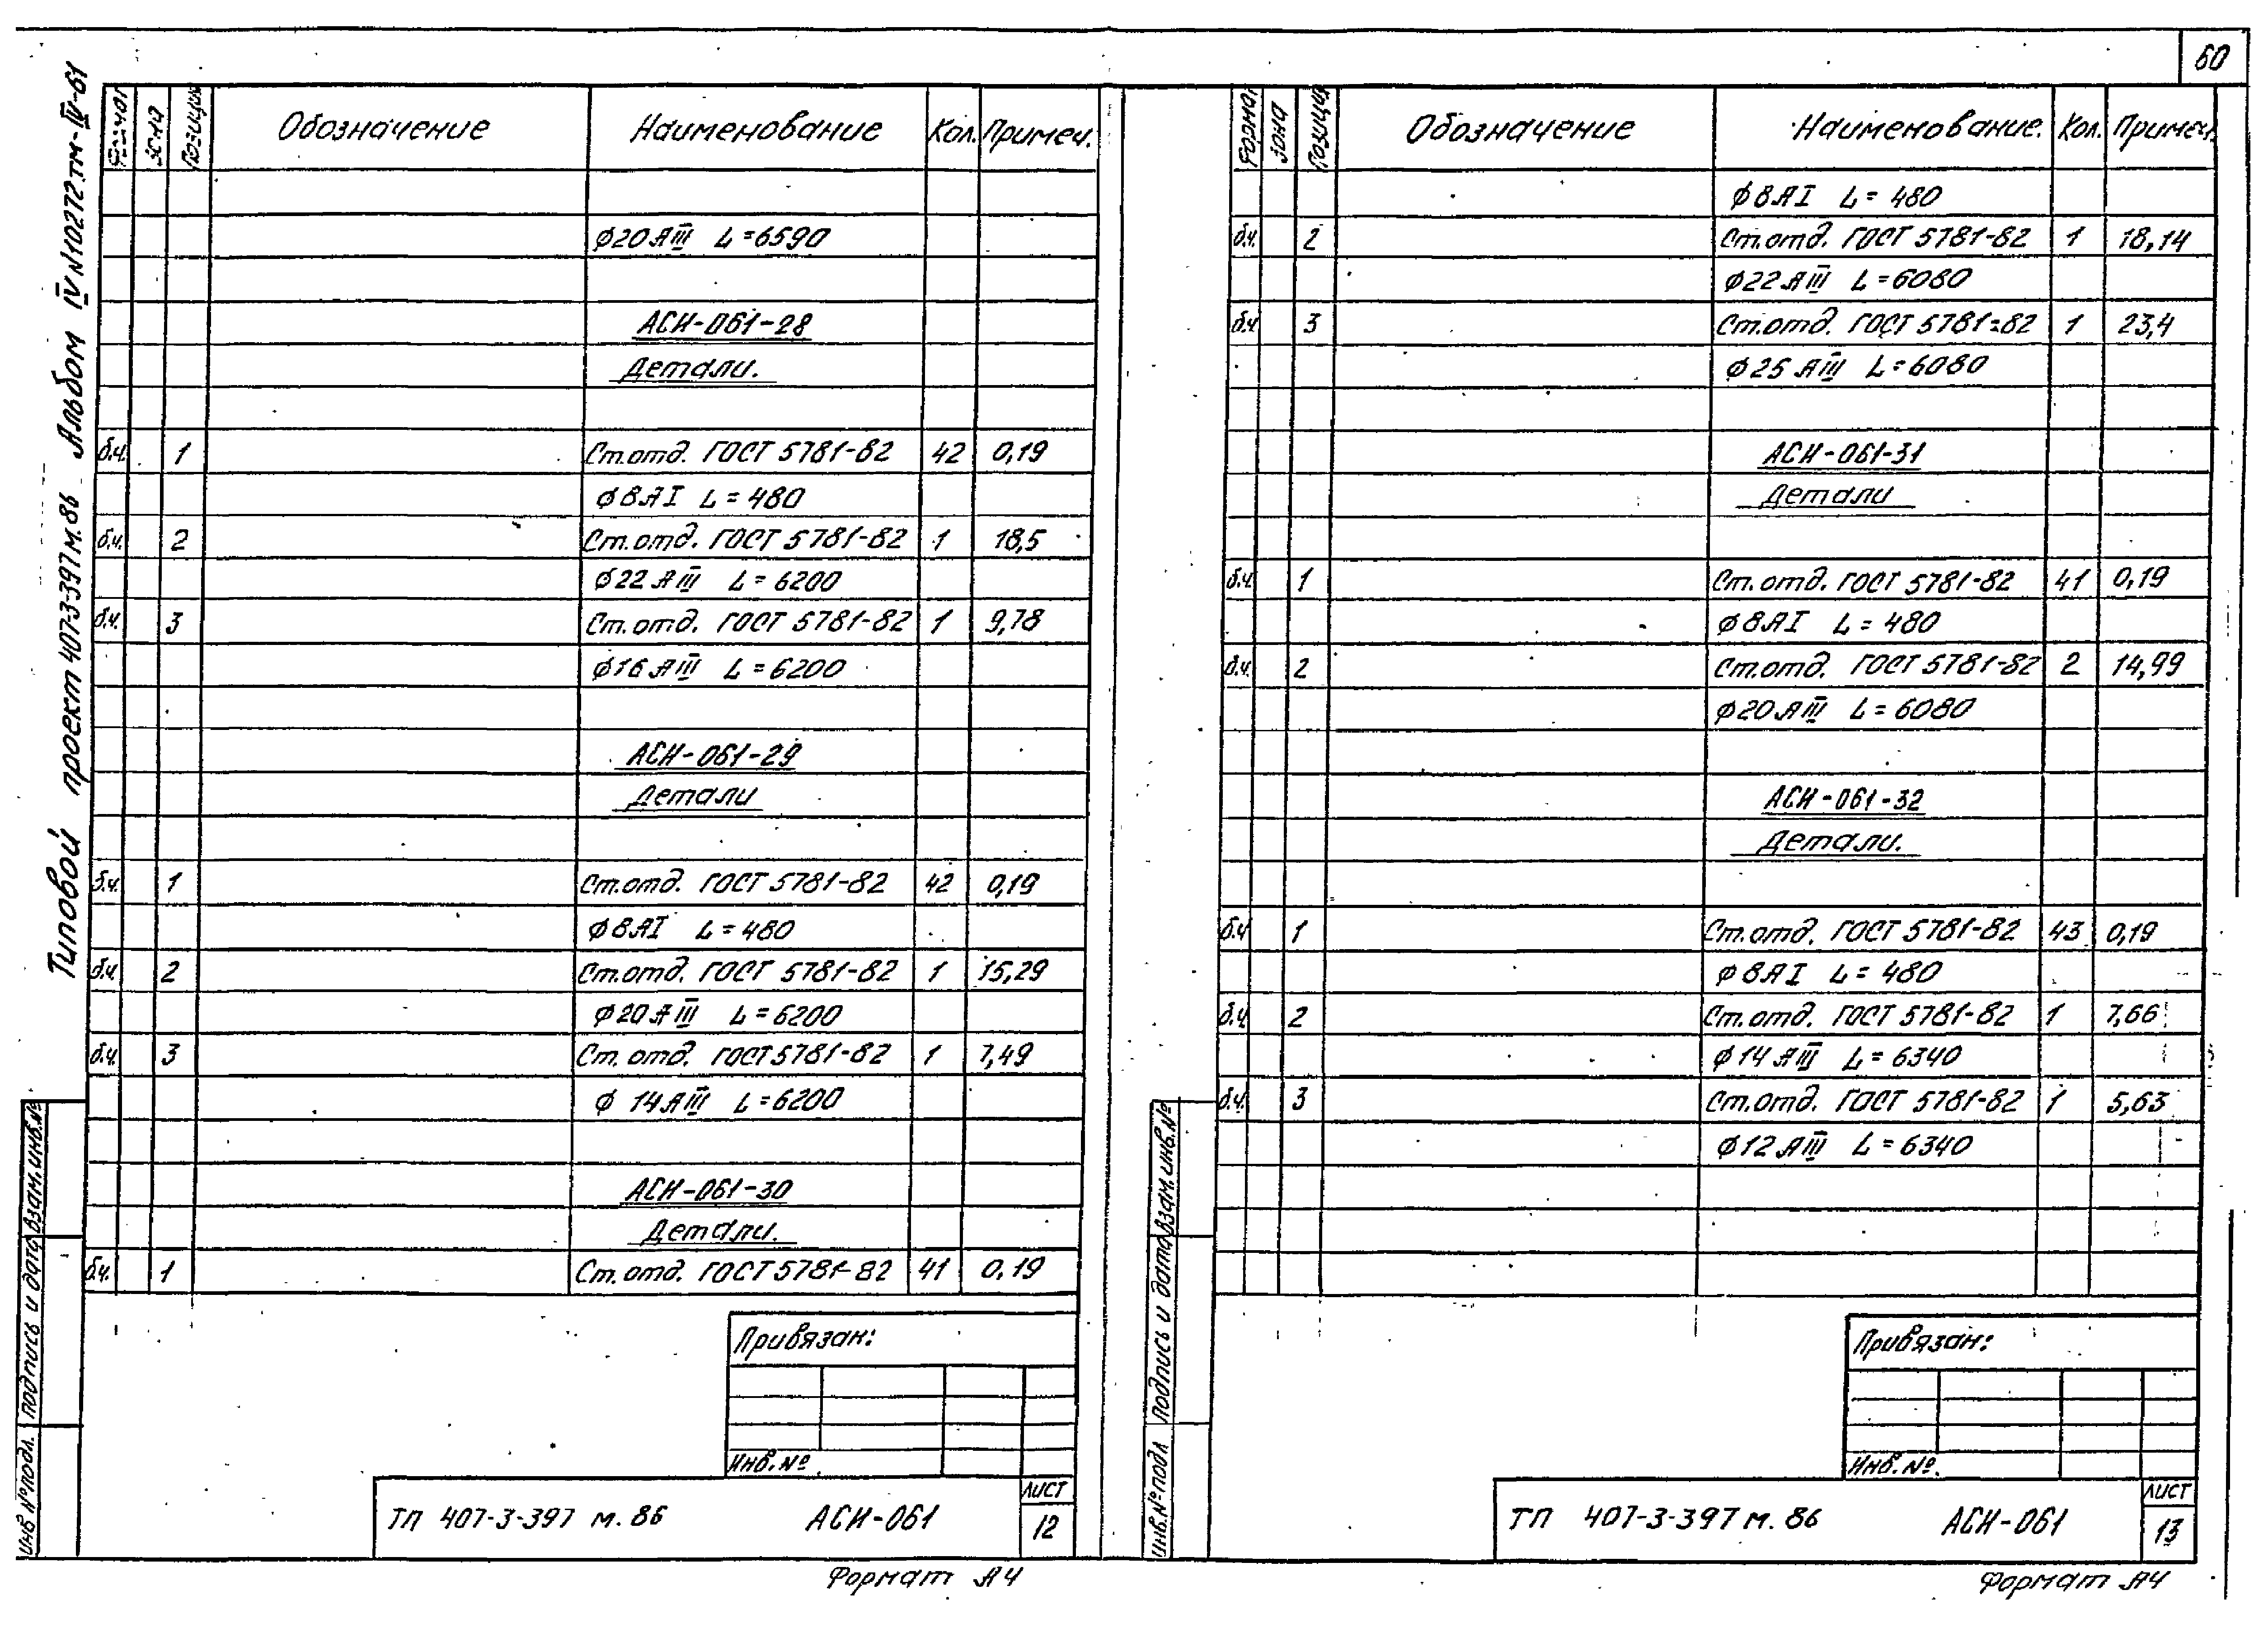 60
Типовой проект 407-3-397м.86 Альбом IV N10272тм-IV-61
Формат Зона Позиция Обозначение Наименование Кол. Примеч.
ф20АIII L=6590
АСИ-061-28
Детали.
б.ч. 1 Ст.отд. ГОСТ 5781-82 42 0,19
ф8АI L=480
б.ч. 2 Ст.отд. ГОСТ 5781-82 1 18,5
ф22АIII L=6200
б.ч. 3 Ст.отд. ГОСТ 5781-82 1 9,78
ф16АIII L=6200
АСИ-061-29
Детали
б.ч. 1 Ст.отд. ГОСТ 5781-82 42 0,19
ф8АI L=480
б.ч. 2 Ст.отд. ГОСТ 5781-82 1 15,29
ф20АIII L=6200
б.ч. 3 Ст.отд. ГОСТ 5781-82 1 7,49
ф14АIII L=6200
АСИ-061-30
Детали.
б.ч. 1 Ст.отд. ГОСТ 5781-82 41 0,19
Привязан:
Инв.№
ТП 407-3-397 м.86 АСИ-061 лист 12
Формат А4
Инв №подл. Подпись и дата Взам.инв.№
Формат Зона Позиция Обозначение Наименование. Кол. Примеч.
ф8АI L=480
б.ч. 2 Ст.отд. ГОСТ 5781-82 1 18,14
ф22АIII L=6080
б.ч. 3 Ст.отд. ГОСТ 5781-82 1 23,4
ф25АIII L=6080
АСИ-061-31
Детали
б.ч. 1 Ст.отд. ГОСТ 5781-82 41 0,19
ф8АI L=480
б.ч. 2 Ст.отд. ГОСТ 5781-82 2 14,99
ф20АIII L=6080
АСИ-061-32
Детали.
б.ч. 1 Ст.отд. ГОСТ 5781-82 43 0,19
ф8АI L=480
б.ч. 2 Ст.отд. ГОСТ 5781-82 1 7,66
ф14АIII L=6340
б.ч. 3 Ст.отд. ГОСТ 5781-82 1 5,63
ф12АIII L=6340
Привязан:
Инв.№.
ТП 407-3-397м.86 АСИ-061 лист 13
Формат А4
Инв.№подл Подпись и дата Взам.инв.№